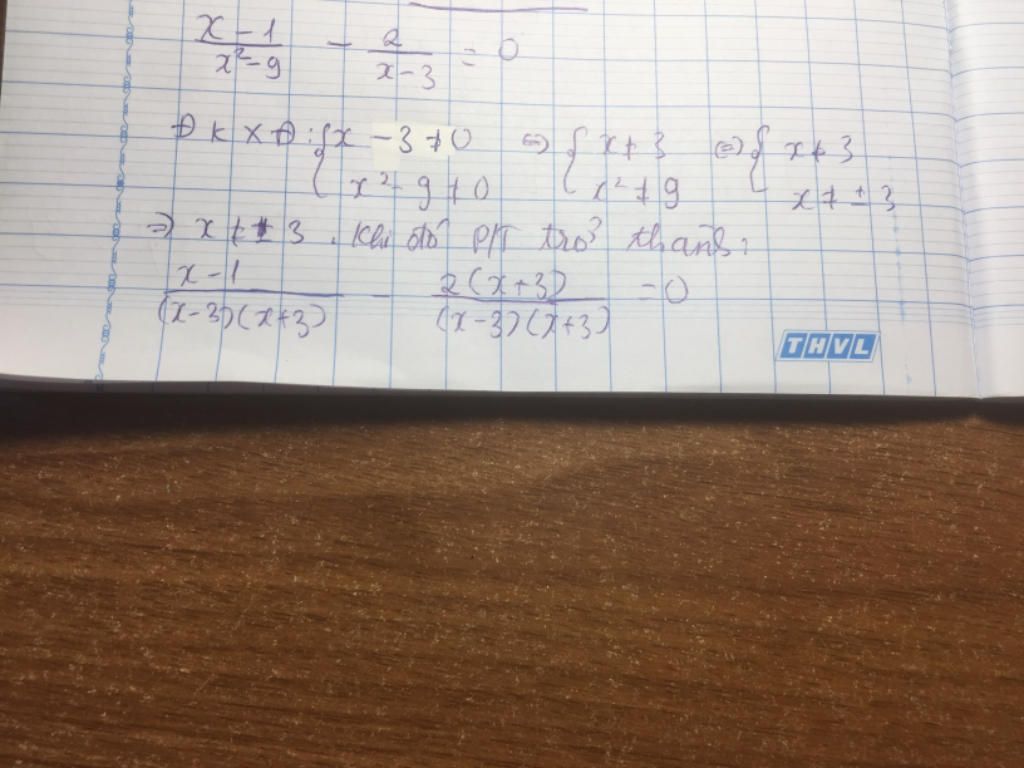 x - 1 / x² - 9 - 2 / x - 3 = 0
ĐKXĐ: { x - 3 ≠ 0 ⇔ { x ≠ 3 ⇔ { x ≠ 3
x² - 9 ≠ 0 x² ≠ 9 x ≠ ± 3
⇒ x ≠ ± 3. Khi đó P/T trở thành:
x - 1 / (x-3)(x+3) - 2(x+3) / (x-3)(x+3) = 0
THVL